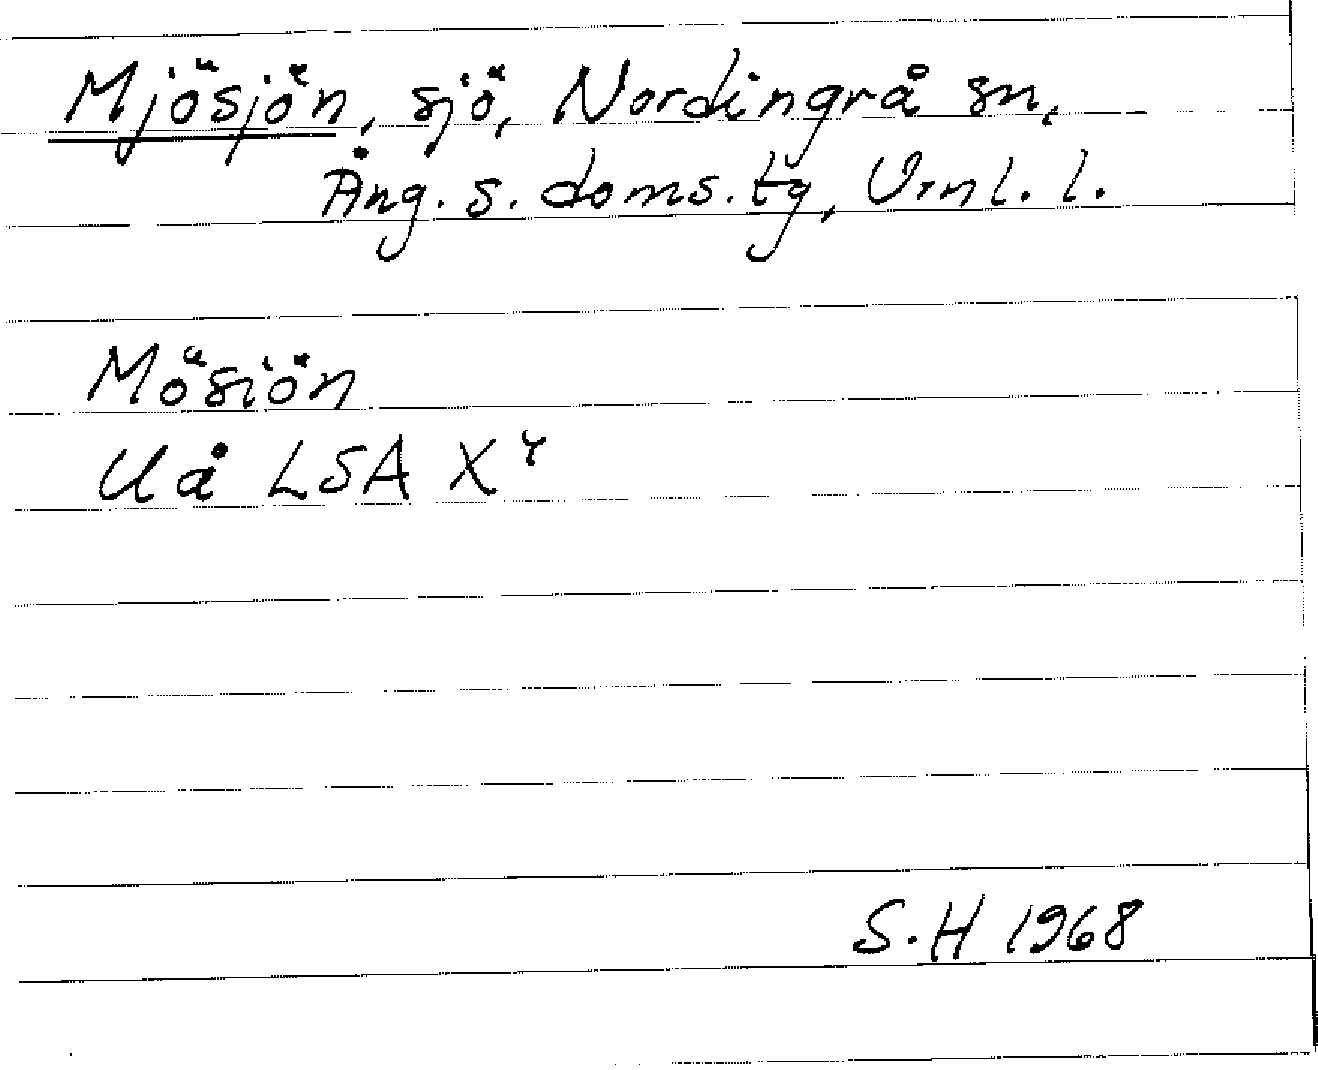 Mjösjön, sjö, Nordingrå sn,
Ång. s. doms.tg, Vrnl. l.
Mösiön
Uå LSA X 4
S.H 1968